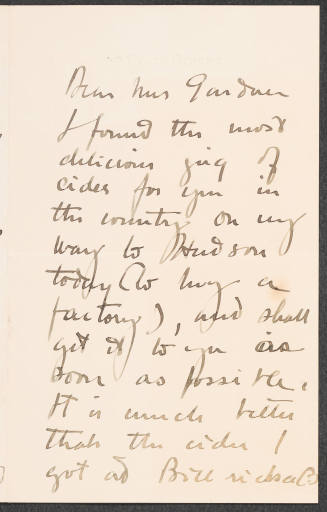 Dear Mrs Gardner
I found the most
delicious jug of
cider for you in
the country on my
way to Hudson
today (to buy a
factory), and shall
get it to you as
soon as possible.
It is much better
than the cider I
got at Billericka(?)